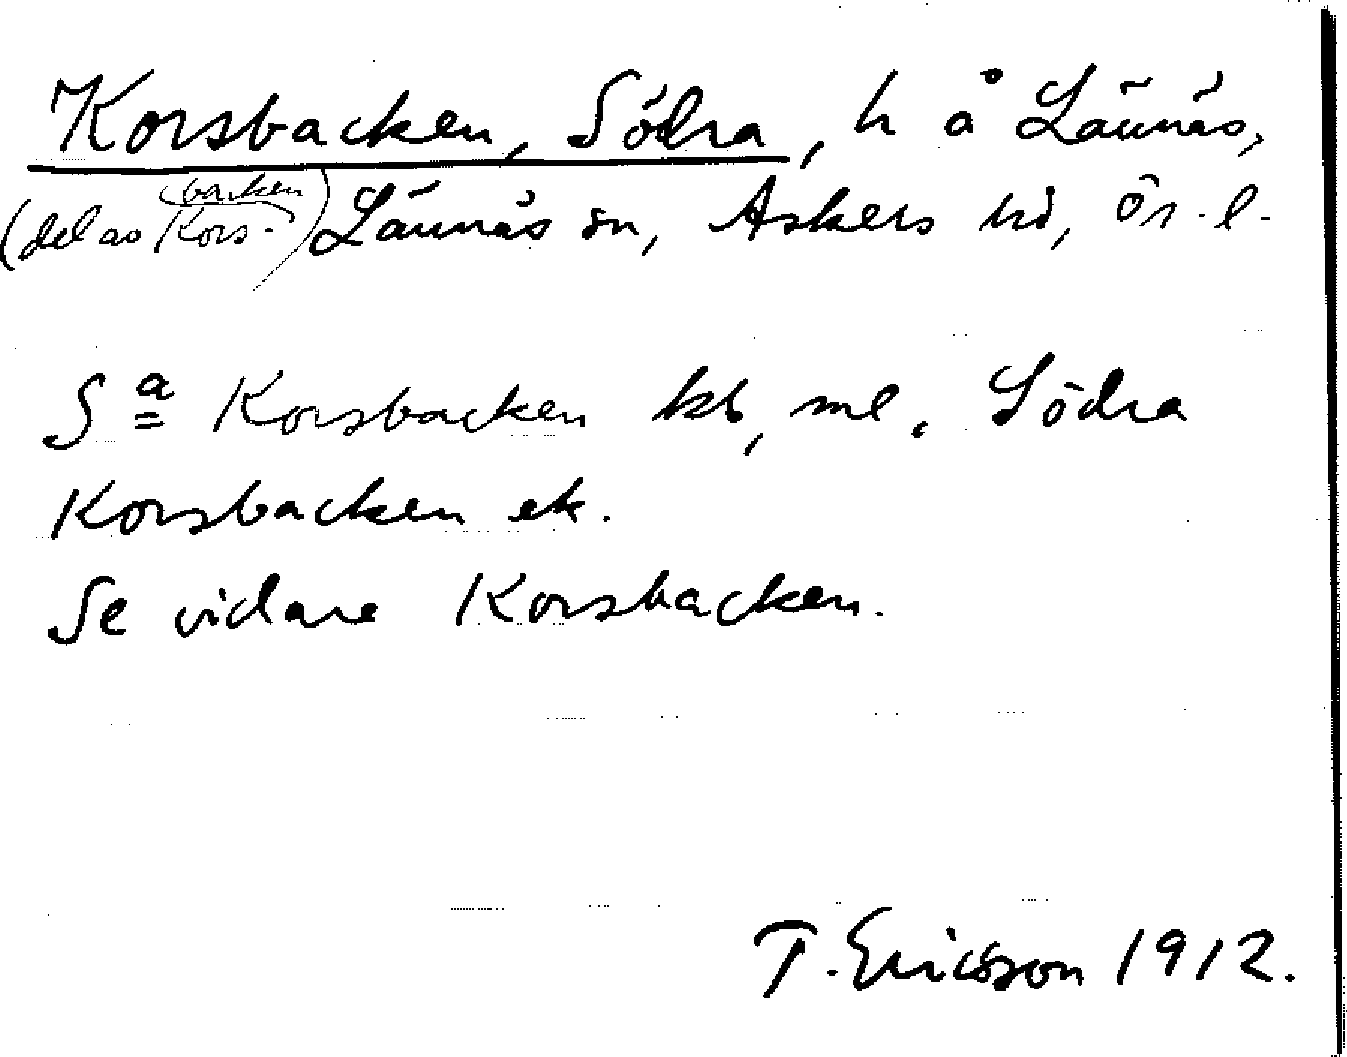 Korsbacken, Södra, h å Lännäs,
(del av Korsbacken) Lännäs sn, Askers hd, Ör. l.
Sa Korsbacken kb, ml. Södra
Korsbacken ek.
Se vidare Korsbacken.
T. Ericsson 1912.